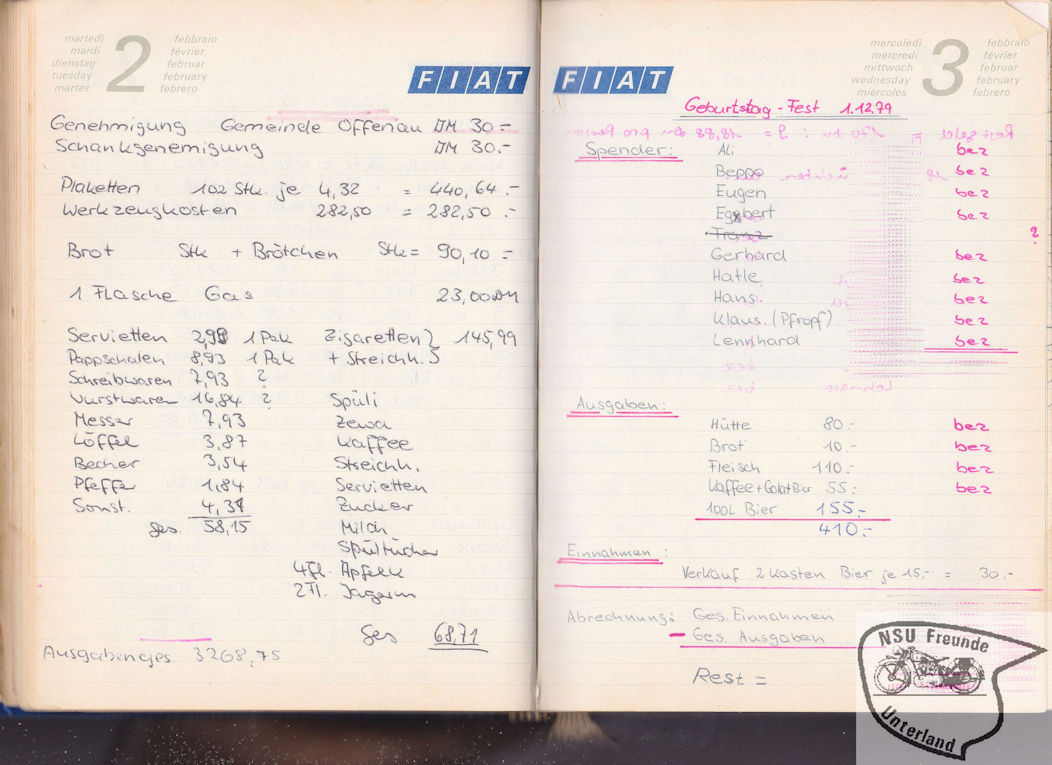 martedì
mardi
dienstag
tuesday
martes
2
febbraio
février
februar
february
febrero
FIAT
Genehmigung Gemeinde Offenau DM 30.-
Schankgenemigung DM 30.-
Plaketten 102 Stk. je 4,32 = 440,64.-
Werkzeugkosten 282,50 = 282,50.-
Brot Stk + Brötchen Stk = 90,10.-
1 Flasche Gas 23,00 DM
Servietten 2,98 1 Pak Zigaretten 145,99
Pappschalen 8,93 1 Pak + Streichh.
Schreibwaren 7,93 ?
Wurstwaren 16,84 ? Spüli
Messer 7,93 Zewa
Löffel 3,87 Kaffee
Becher 3,54 Streichh.
Pfeffer 1,84 Servietten
Sonst. 4,31 Zucker
ges. 58,15 Milch
Spültücher
4 Fl. Apfelk
2 Fl. Jägerm
Ges 68,71
Ausgaben ges. 3268,75
FIAT
mercoledì
mercredi
mittwoch
wednesday
miercoles
3
febbraio
février
februar
february
febrero
Geburtstag - Fest 1.12.79
Spender: Ali bez
Beppo bez
Eugen bez
Eggbert bez
Franz ?
Gerhard bez
Hatle bez
Hans bez
Klaus. (Pfropf) bez
Lennhard bez
Ausgaben:
Hütte 80.- bez
Brot 10.- bez
Fleisch 110.- bez
Kaffee + Salat Bier 55.- bez
100L Bier 155.-
410.-
Einnahmen:
Verkauf 2 Kasten Bier je 15.- = 30.-
Abrechnung: Ges. Einnahmen
- Ges. Ausgaben
Rest =
NSU Freunde
Unterland